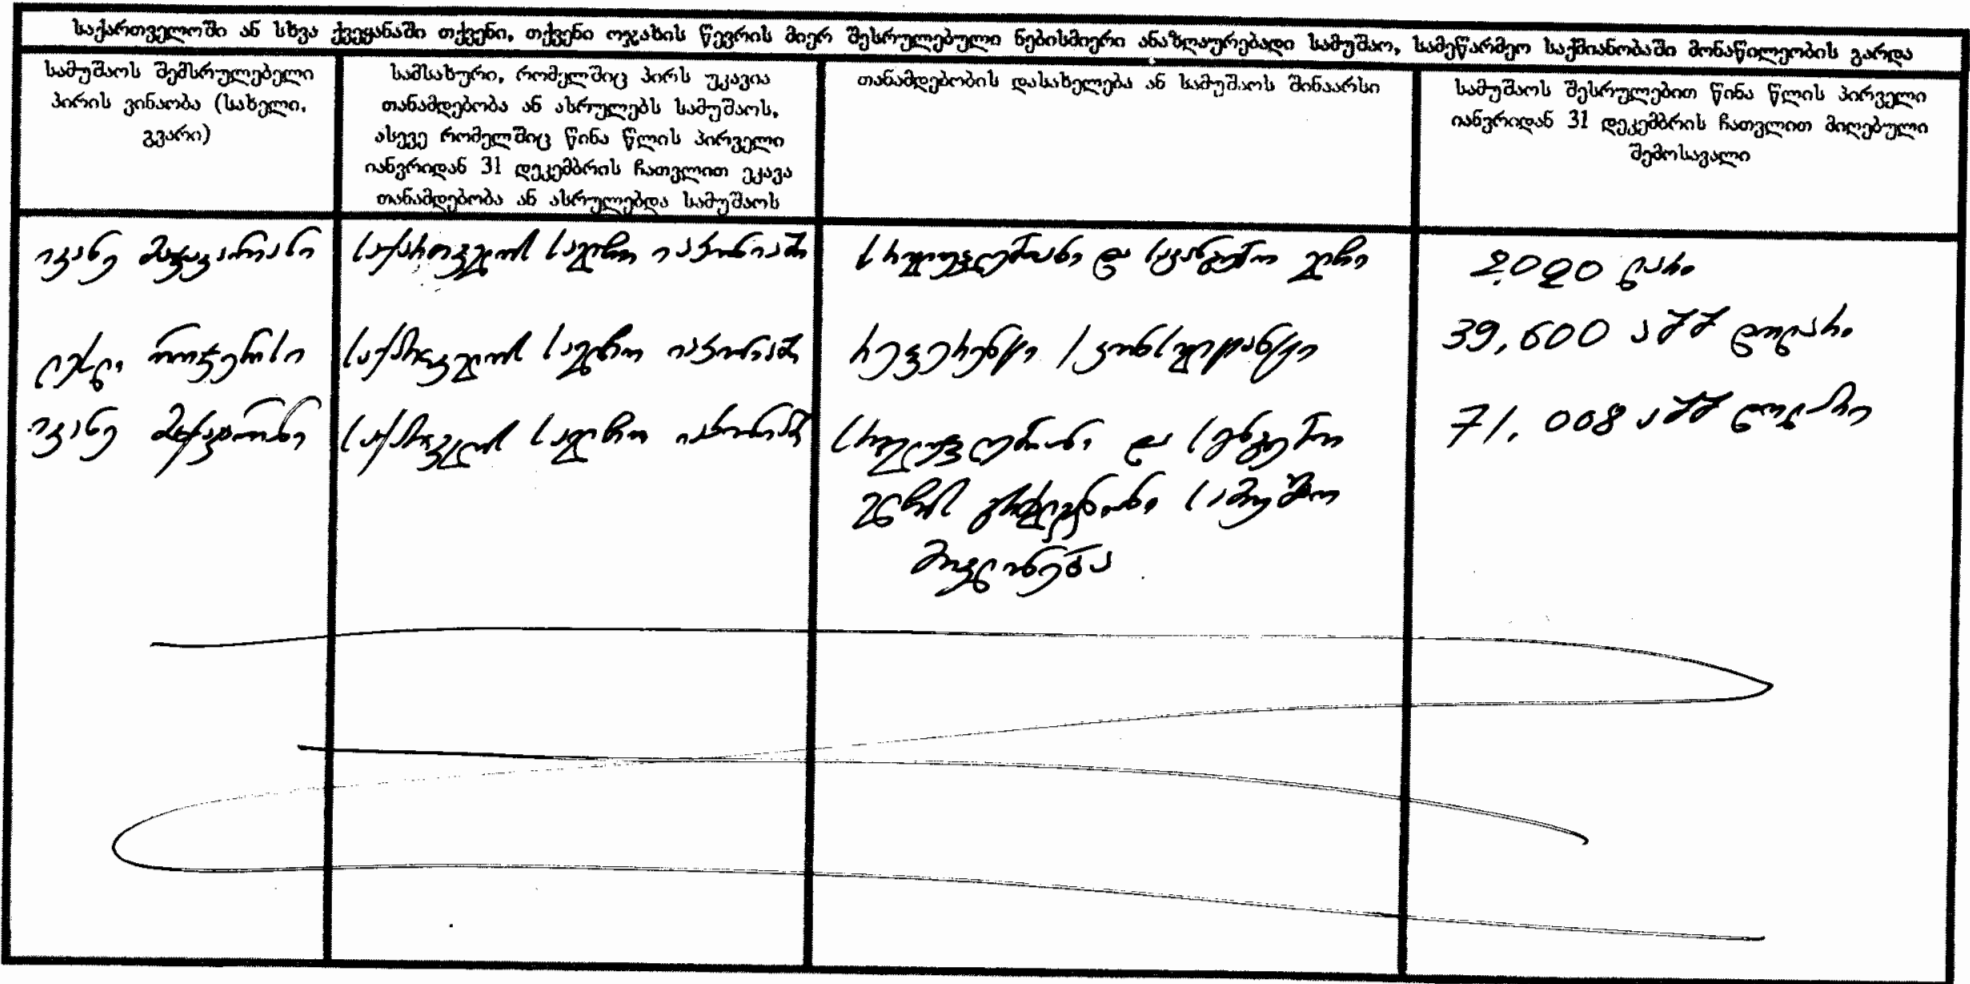 საქართველოში ან სხვა ქვეყანაში თქვენი, თქვენი ოჯახის წევრის მიერ შესრულებული ნებისმიერი ანაზღაურებადი სამუშაო, სამეწარმეო საქმიანობაში მონაწილეობის გარდა
სამუშაოს შემსრულებელი
პირის ვინაობა (სახელი,
გვარი)
სამსახური, რომელშიც პირს უკავია
თანამდებობა ან ასრულებს სამუშაოს,
ასევე რომელშიც წინა წლის პირველი
იანვრიდან 31 დეკემბრის ჩათვლით ეკავა
თანამდებობა ან ასრულებდა სამუშაოს
თანამდებობის დასახელება ან სამუშაოს შინაარსი
სამუშაოს შესრულებით წინა წლის პირველი
იანვრიდან 31 დეკემბრის ჩათვლით მიღებული
შემოსავალი
ივანე მაჭავარიანი
საქართველოს საელჩო იაპონიაში
სრულუფლებიანი და საგანგებო ელჩი
ლარი
საქართველოს საელჩო იაპონიაში
რეფერენტი / კონსულტანტი
39,600 აშშ დოლარი
ივანე
საქართველოს საელჩო იაპონიაში
სრულუფლებიანი და საგანგებო
ელჩის გრძელვადიანი სამუშაო
მივლინება
71,008 აშშ დოლარი